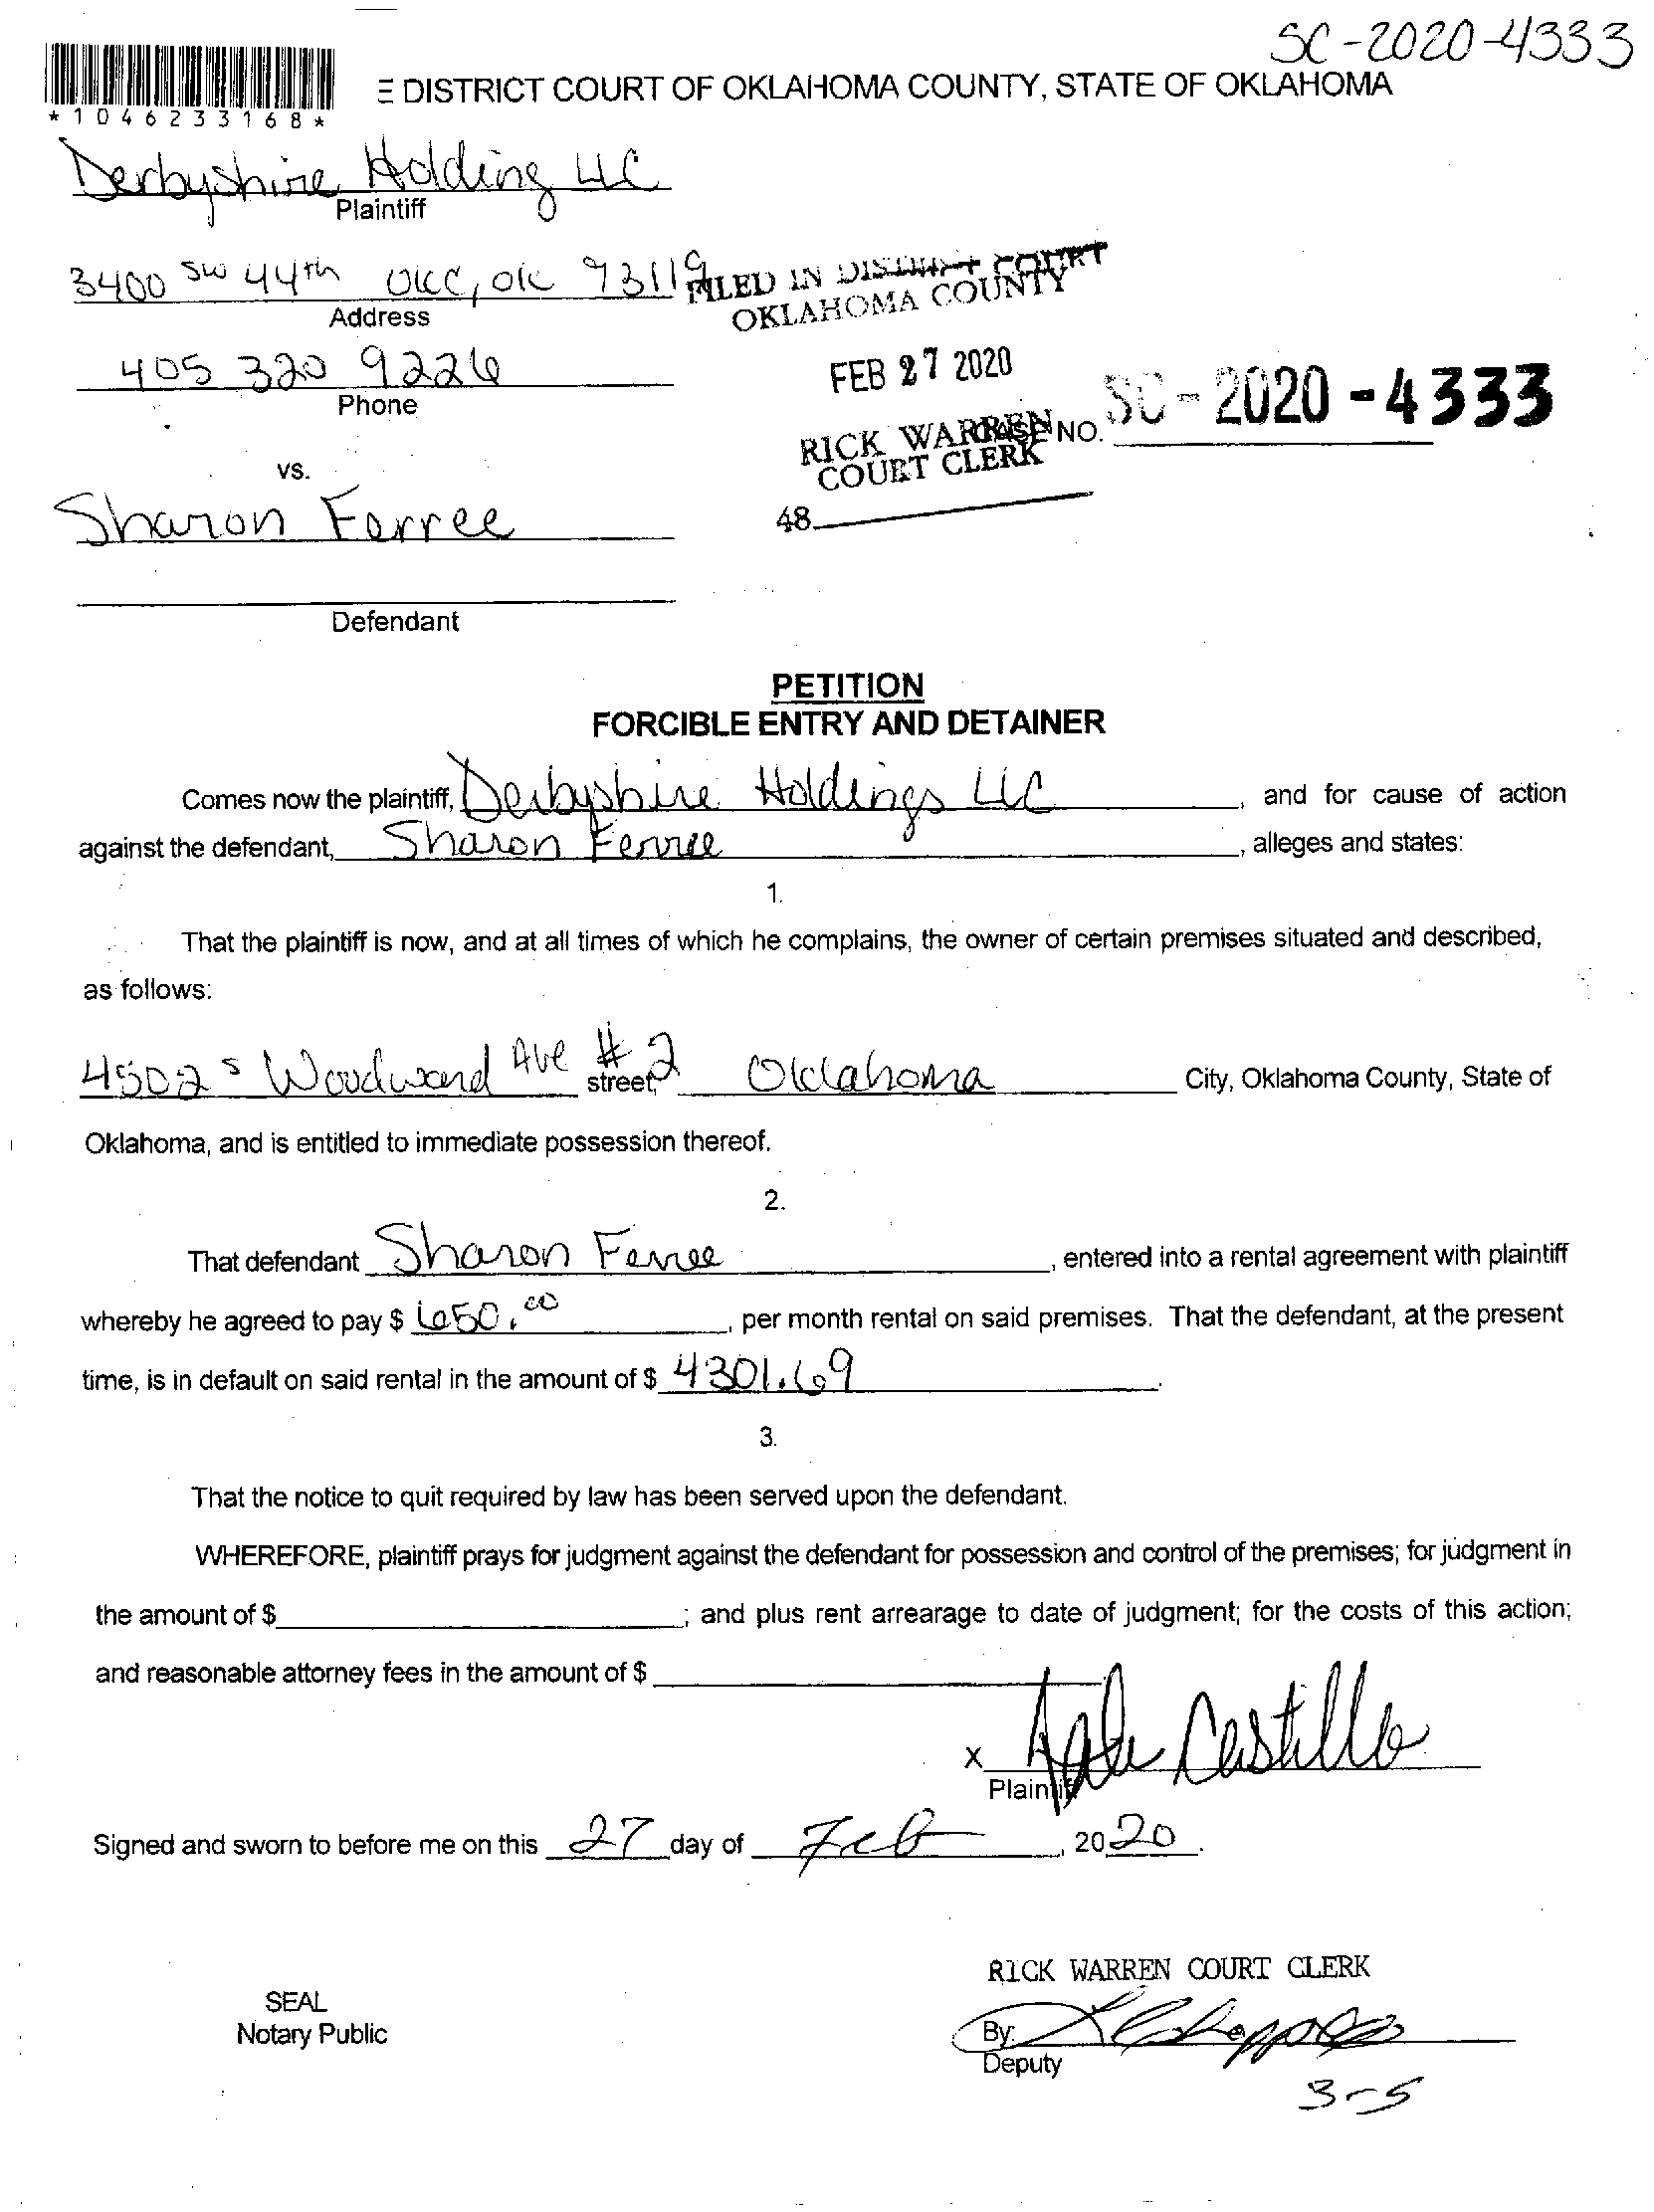 SC-2020-4333
E DISTRICT COURT OF OKLAHOMA COUNTY, STATE OF OKLAHOMA
*1046233168*
Derbyshire Holding LLC
Plaintiff
3400 SW 44th OKC, OK 73119
Address
FILED IN DISTRICT COURT
OKLAHOMA COUNTY
405 320 9226
Phone
FEB 27 2020
RICK WARREN
COURT CLERK
48
CASE NO. SC-2020-4333
vs.
Sharon Ferree
Defendant
PETITION
FORCIBLE ENTRY AND DETAINER
Comes now the plaintiff, Derbyshire Holdings LLC, and for cause of action
against the defendant, Sharon Ferree, alleges and states:
1.
That the plaintiff is now, and at all times of which he complains, the owner of certain premises situated and described,
as follows:
4502 S Woodward Ave #2 street, Oklahoma City, Oklahoma County, State of
Oklahoma, and is entitled to immediate possession thereof.
2.
That defendant Sharon Ferree, entered into a rental agreement with plaintiff
whereby he agreed to pay $ 650.00, per month rental on said premises. That the defendant, at the present
time, is in default on said rental in the amount of $ 4301.69.
3.
That the notice to quit required by law has been served upon the defendant.
WHEREFORE, plaintiff prays for judgment against the defendant for possession and control of the premises; for judgment in
the amount of $ ; and plus rent arrearage to date of judgment; for the costs of this action;
and reasonable attorney fees in the amount of $
x Castillo
Plaintiff
Signed and sworn to before me on this 27 day of Feb, 2020.
RICK WARREN COURT CLERK
SEAL
Notary Public
By:
Deputy
3-5